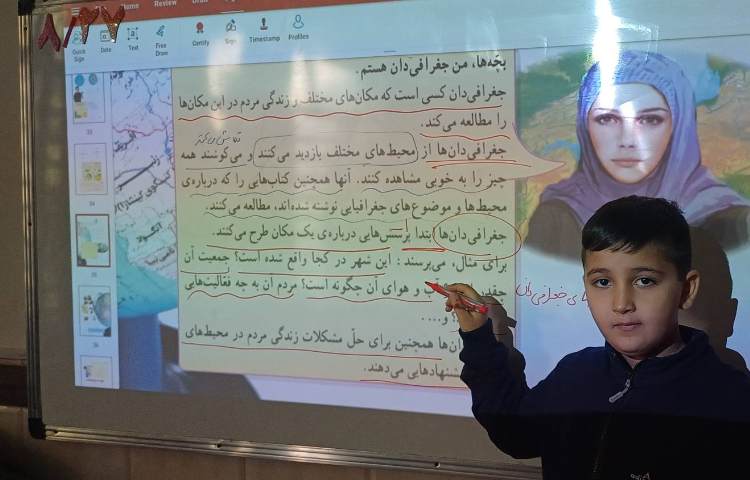 Home
Review
۸/۲۷
Quick Sign
Date
Text
Free Draw
Certify
Sign
Timestamp
Profiles
بچّه‌ها، من جغرافی‌دان هستم.
جغرافی‌دان کسی است که مکان‌های مختلف و زندگی مردم در این مکان‌ها
را مطالعه می‌کند.
تلاش می‌کنند
جغرافی‌دان‌ها از محیط‌های مختلف بازدید می‌کنند و می‌کوشند همه
چیز را به خوبی مشاهده کنند. آنها همچنین کتاب‌هایی را که درباره‌ی
محیط‌ها و موضوع‌های جغرافیایی نوشته شده‌اند، مطالعه می‌کنند.
جغرافی‌دان‌ها ابتدا پرسش‌هایی درباره‌ی یک مکان طرح می‌کنند.
برای مثال، می‌پرسند : این شهر در کجا واقع شده است؟ جمعیت آن
آب و هوای آن چگونه است؟ مردم آن به چه فعّالیت‌هایی
و....
همچنین برای حلّ مشکلات زندگی مردم در محیط‌های
می‌دهند.
33
34
35
36